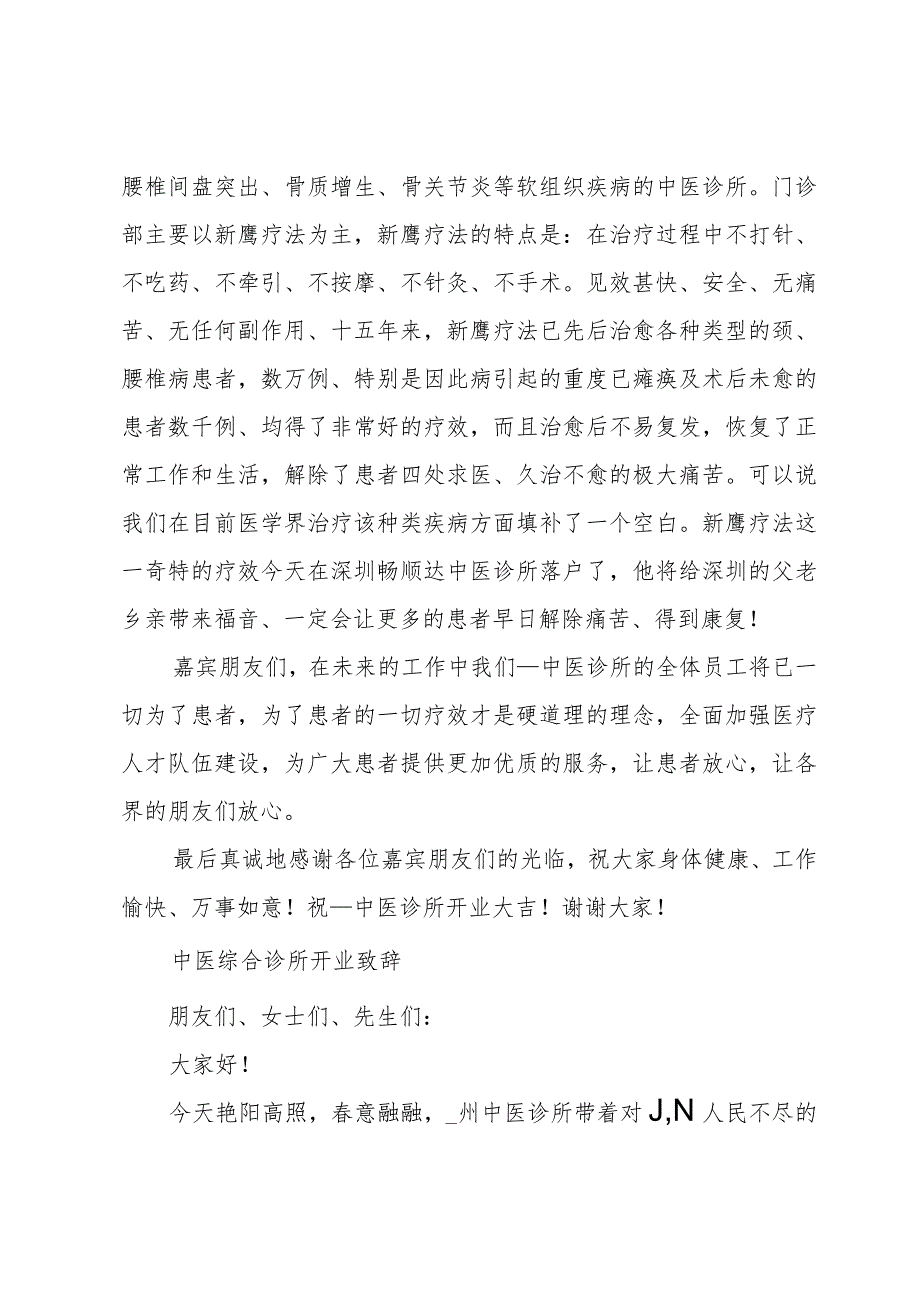 腰椎间盘突出、骨质增生、骨关节炎等软组织疾病的中医诊所。门诊
部主要以新鹰疗法为主，新鹰疗法的特点是：在治疗过程中不打针、
不吃药、不牵引、不按摩、不针灸、不手术。见效甚快、安全、无痛
苦、无任何副作用、十五年来，新鹰疗法已先后治愈各种类型的颈、
腰椎病患者，数万例、特别是因此病引起的重度已瘫痪及术后未愈的
患者数千例、均得了非常好的疗效，而且治愈后不易复发，恢复了正
常工作和生活，解除了患者四处求医、久治不愈的极大痛苦。可以说
我们在目前医学界治疗该种类疾病方面填补了一个空白。新鹰疗法这
一奇特的疗效今天在深圳畅顺达中医诊所落户了，他将给深圳的父老
乡亲带来福音、一定会让更多的患者早日解除痛苦、得到康复！
嘉宾朋友们，在未来的工作中我们—中医诊所的全体员工将已一
切为了患者，为了患者的一切疗效才是硬道理的理念，全面加强医疗
人才队伍建设，为广大患者提供更加优质的服务，让患者放心，让各
界的朋友们放心。
最后真诚地感谢各位嘉宾朋友们的光临，祝大家身体健康、工作
愉快、万事如意！祝—中医诊所开业大吉！谢谢大家！
中医综合诊所开业致辞
朋友们、女士们、先生们：
大家好！
今天艳阳高照，春意融融，_州中医诊所带着对 J,N 人民不尽的